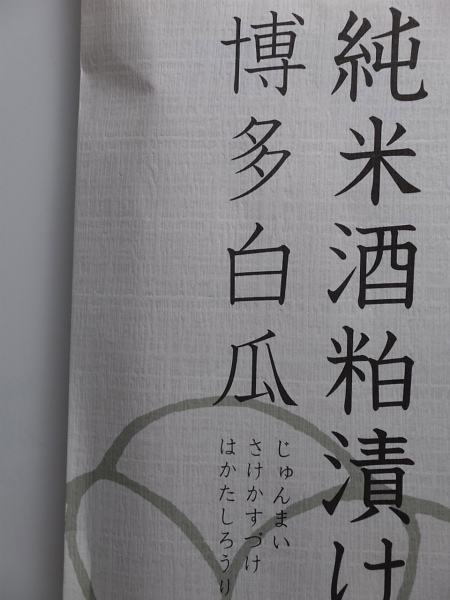 純米酒粕漬け
博多白瓜
じゅんまい
さけかすづけ
はかたしろうり